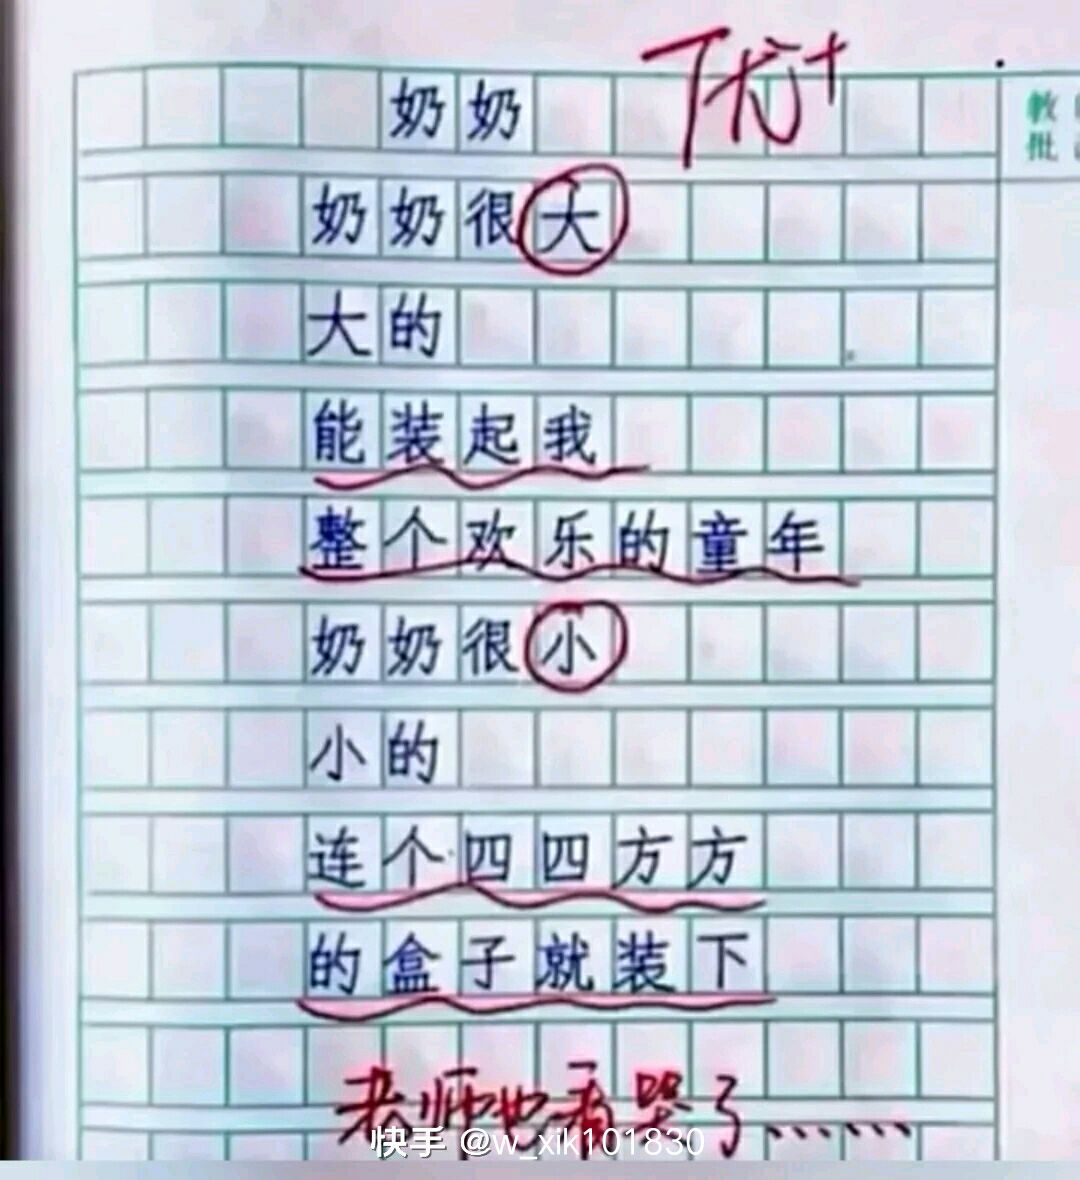 奶奶
优+
教
批
奶奶很大
大的
能装起我
整个欢乐的童年
奶奶很小
小的
连个四四方方
的盒子就装下
老师也看哭了......
快手 @w_xik101830